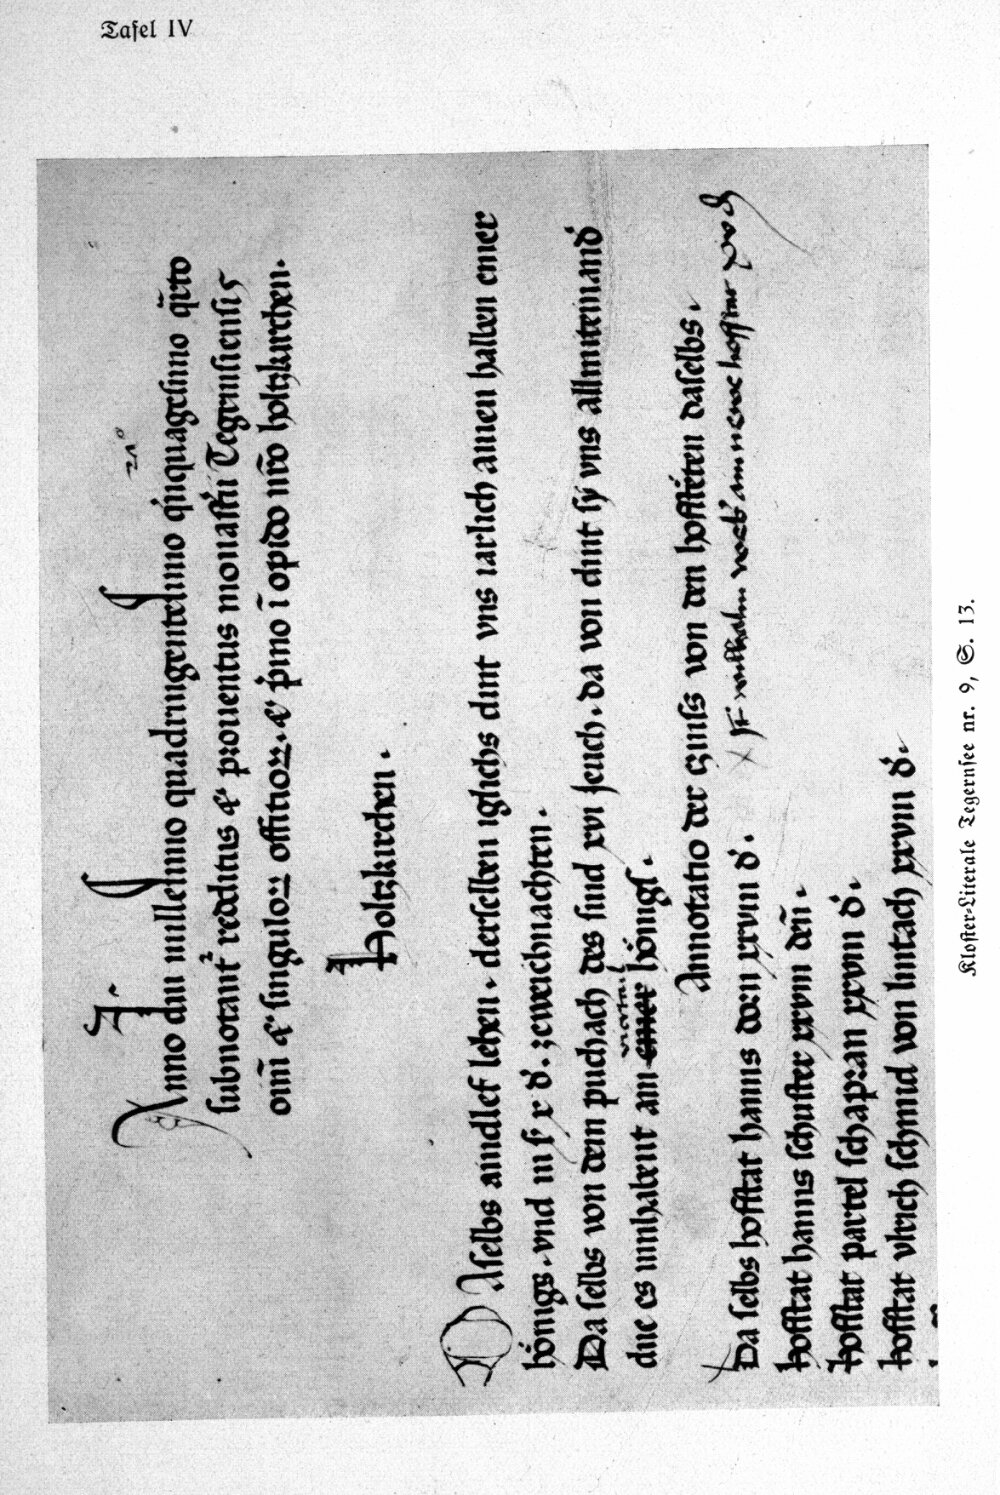 Tafel IV
Anno dn̄i millesimo quadringentesimo q̇nquagesimo qīto
subnotant᷑ redditus ⁊ prouentus monast́ii Tegernsiensis
om̄i ⁊ singuloꝝ offitioꝝ ⁊ p̍mo ī opido nr̄o holtzkirchen.
Holtzkirchen.
Daselbs aindlef lehen. derselben iglichs dint vns iarlich ainen halben emer
hönigs. vnd in s. x d. zeweichnachten.
Da selbs von dem puchach des sind xvi jeuch. da von dint sÿ vns allmiteinand᷑
die es innhabent am emer viertail hönigs.
Annotatio der czinss von den hofsteten daselbs.
Da selbs hofstat hanns xxviii d.
hofstat hanns schuster xxviii den̄.
hofstat partel schapran xxviii d.
hofstat vlrich schmid von lintach xxviii d.
Kloster-Literale Tegernsee nr. 9, S. 13.